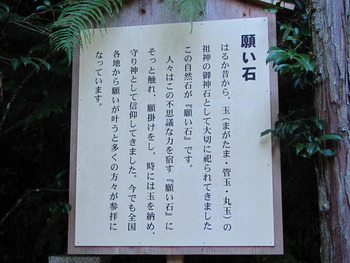 願い石
はるか昔から、玉（まがたま・管玉・丸玉）の
祖神の御神石として大切に祀られてきました
この自然石が『願い石』です。
人々はこの不思議な力を宿す『願い石』に
そっと触れ、願掛けをし、時には玉を納め、
守り神として信仰してきました。今でも全国
各地から願いが叶うと多くの方々が参拝に
なっています。